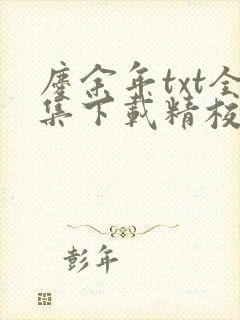 廛余年txt全
集下载精校
彭年